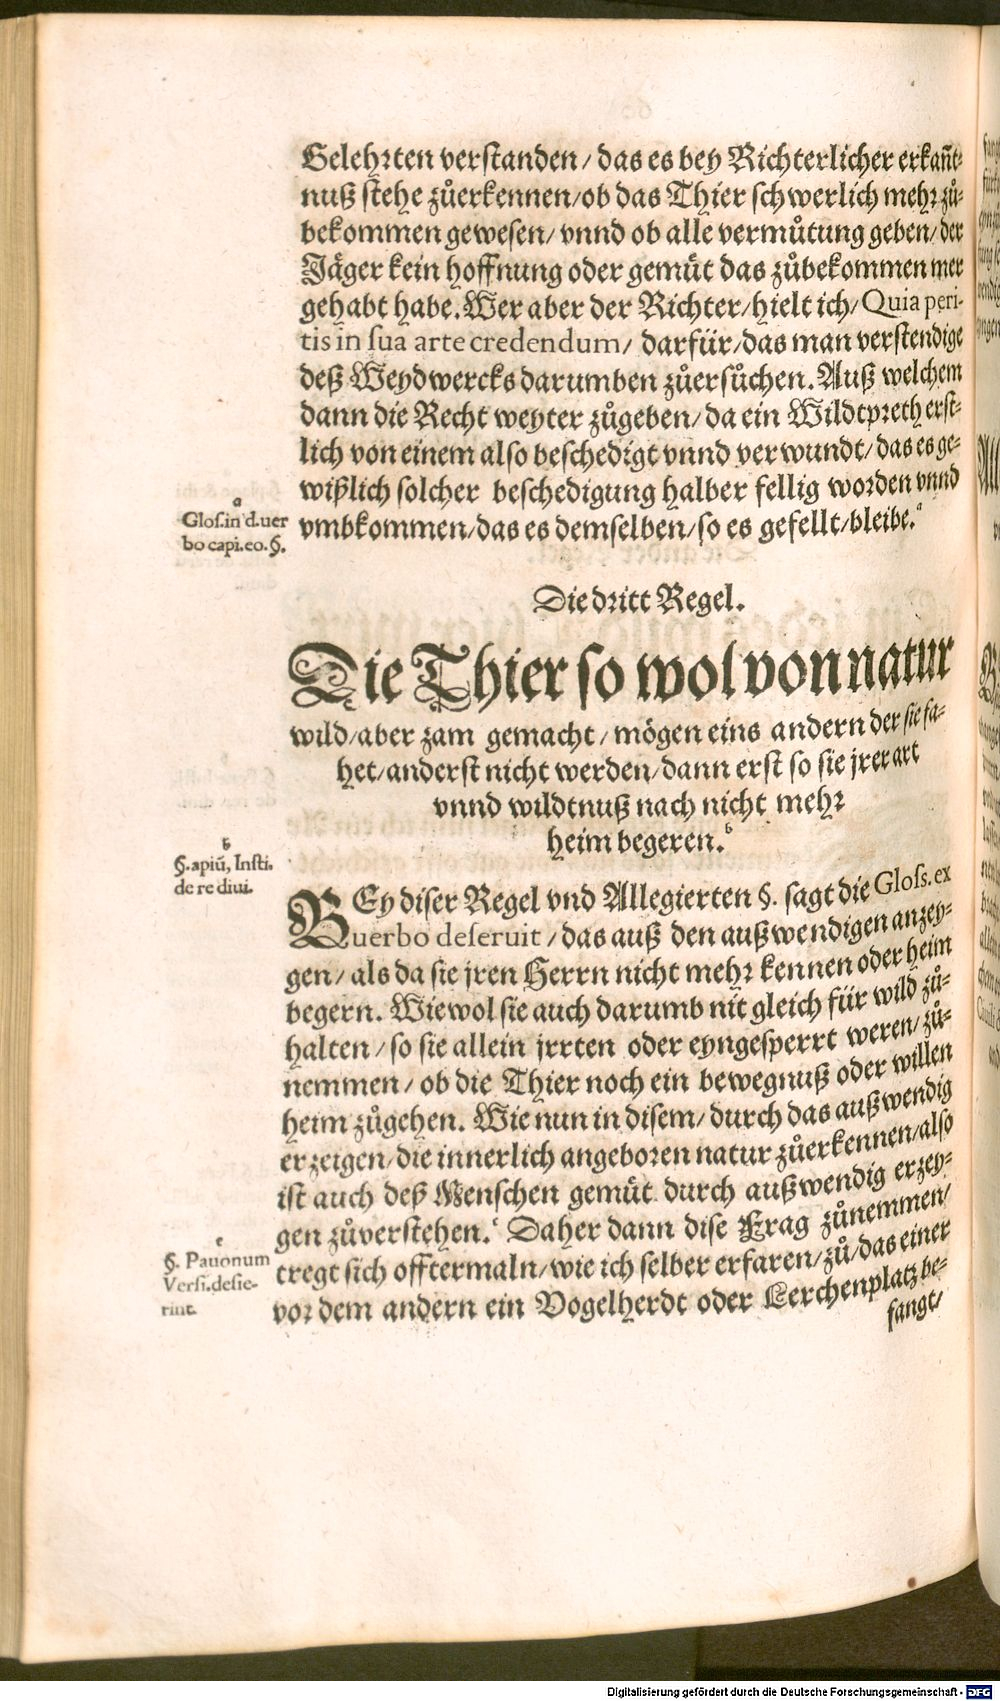 Gelehrten verstanden / das es bey Richterlicher erkañt-
nuß stehe zůerkennen / ob das Thier schwerlich mehr zů-
bekommen gewesen / vnnd ob alle vermůtung geben / der
Jäger kein hoffnung oder gemüt das zůbekommen mer
gehabt habe. Wer aber der Richter / hielt ich / Quia peri-
tis in sua arte credendum / darfür / das man verstendige
deß Weydwercks darumben zůersůchen. Auß welchem
dann die Recht weyter zůgeben / da ein Wildtpreth erst-
lich von einem also beschedigt vnnd verwundt / das es ge-
wißlich solcher beschedigung halber fellig worden vnnd
vmbkommen / das es demselben / so es gefellt / bleibe.a
a
Glos. in d. uer
bo capi. eo. §.
Die dritt Regel.
Die Thier so wol von natur
wild / aber zam gemacht / mögen eins andern der sie fa-
het / anderst nicht werden / dann erst so sie jrer art
vnnd wildtnuß nach nicht mehr
heim begeren.b
b
§. apiũ, Insti.
de re diui.
BEy diser Regel vnd Allegierten §. sagt die Gloss. ex
uerbo deseruit / das auß den außwendigen anzey-
gen / als da sie jren Herrn nicht mehr kennen oder heim
begern. Wiewol sie auch darumb nit gleich für wild zů-
halten / so sie allein jrrten oder eyngesperrt weren / zů-
nemmen / ob die Thier noch ein bewegnuß oder willen
heim zůgehen. Wie nun in disem / durch das außwendig
erzeigen / die innerlich angeboren natur zůerkennen / also
ist auch deß Menschen gemüt durch außwendig erzey-
gen zůverstehen.c Daher dann dise Frag zůnemmen /
tregt sich offtermaln / wie ich selber erfaren / zů / das einer
vor dem andern ein Vogelherdt oder Lerchenplatz be-
fangt /
c
§. Pauonum
Versi. desie-
rint.
Digitalisierung gefördert durch die Deutsche Forschungsgemeinschaft - DFG